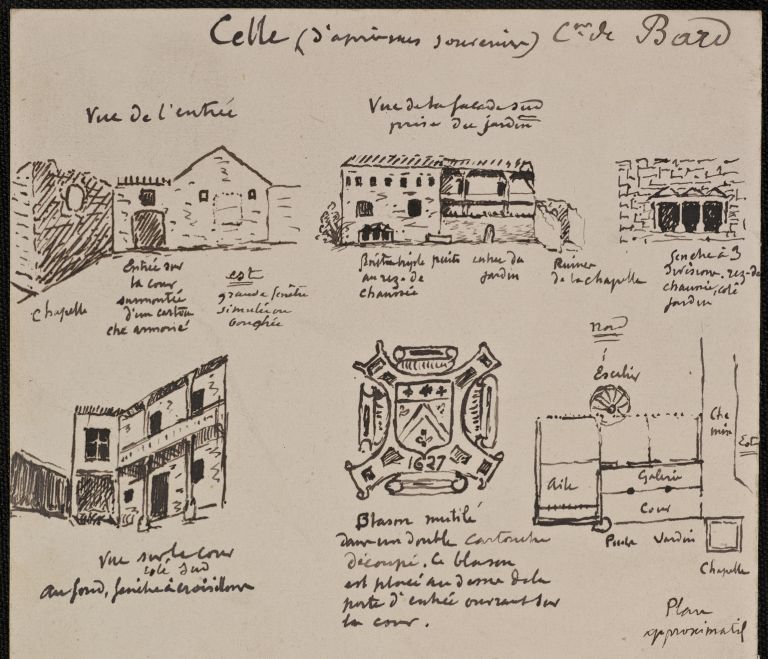 Celle (d'après mes souvenirs) Cne de Bard
Vue de l'entrée
Vue de la façade sud
prise du jardin
Chapelle
Entrée sur
la cour
surmontée
d'un cartou
che armorié
est
grande fenêtre
simulée ou
bouchée
Fenêtre triple
au rez-de
chaussée
puits
entrée du
jardin
Ruines
de la chapelle
fenêtre à 3
divisions. rez-de
chaussée, côté
jardin
Vue sur la cour
côté sud
au fond, fenêtre à croisillons
1627
Blason mutilé
dans un double cartouche
découpé. Ce blason
est placé au dessus de la
porte d'entrée ouvrant sur
la cour.
nord
Escalier
Che
min
Est
Aile
Galerie
Cour
Jardin
Chapelle
Plan
approximatif